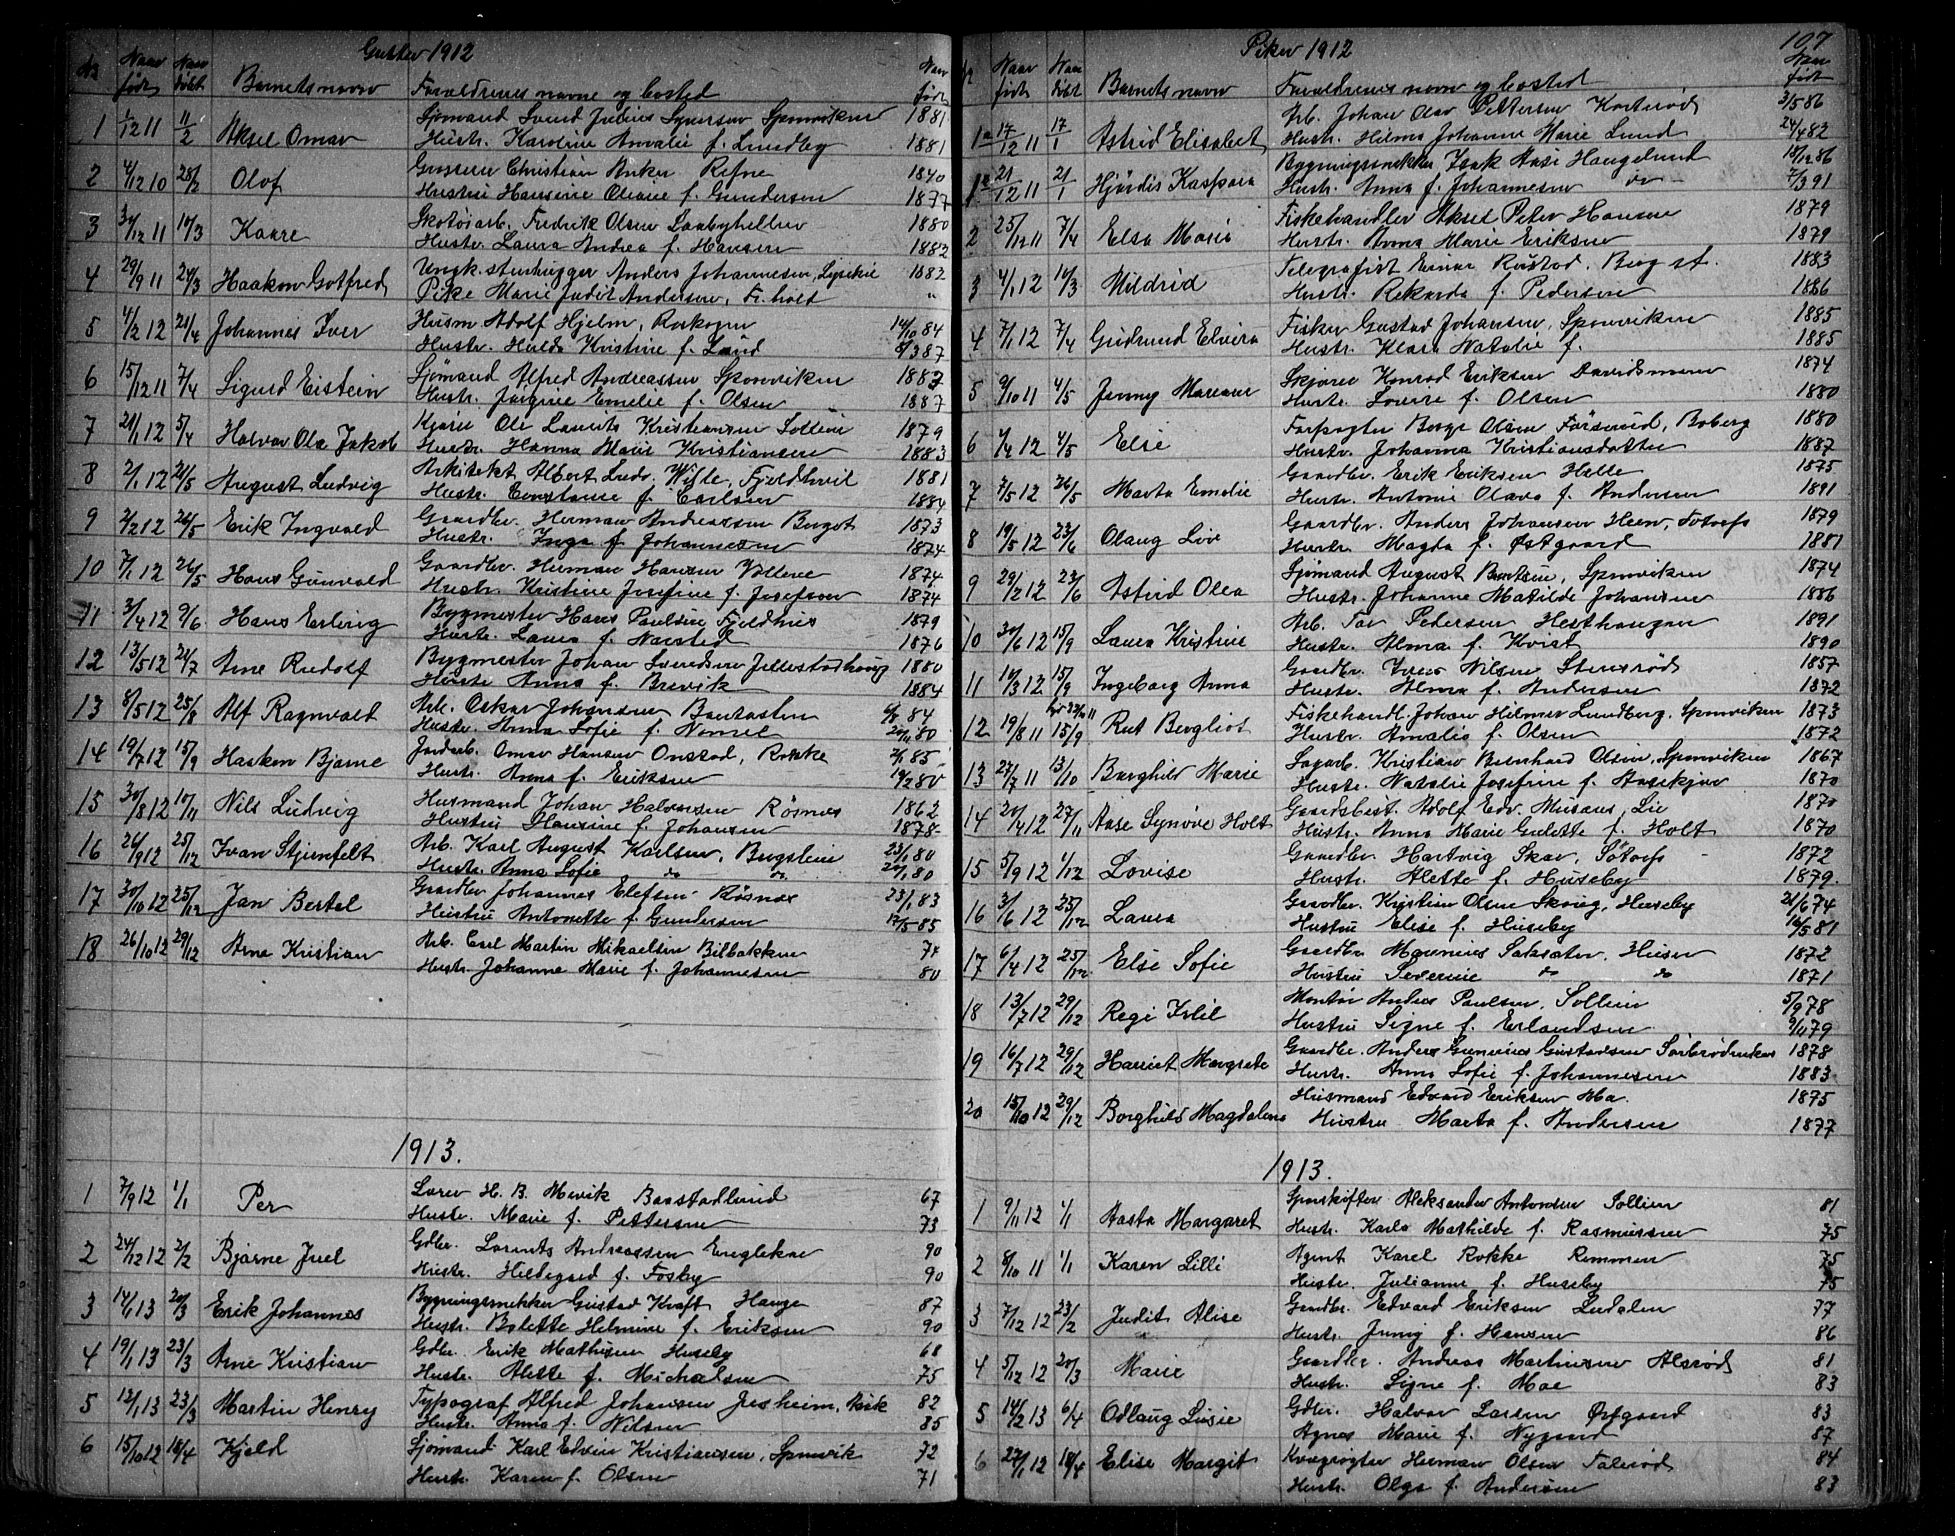 Gutter 1912
No Naar født Naar døbt Barnets navn Forældrenes navne og bosted Naar født
1 11/2 Aksel Omar Sjømand Svend Julius Syversen Sponviken 1881
Hustr. Karoline Amalie f. Lundby 1881
2 4/12 10 28/2 Olof Christian Anker Refne 1840
Hustru Hansine Oliane f. Gundersen 1877
3 30/12 11 10/3 Kaare Skotøiarb. Fredrik Olsen 1880
Hustr. Laura Andrea f. Hansen 1882
4 29/9 11 24/3 Haakon Gotfred Ungk. stenhugger Anders Johannesen, Lysekil 1882
Pike Marie Judit Andersen, Fr.hald "
5 4/2 12 21/4 Johannes Iver Husm Adolf Hjelm, Roskogen 14/10 84
Hustr. Hulda Kristine f. Lund 8/3 87
6 15/12 11 7/4 Sigurd Eistein Sjømand Alfred Andreassen Sponviken 1887
Hustr. Jørgine Emelie f. Olsen 1887
7 21/1 12 5/4 Halvor Ola Jakob Kjører Ole Laurits Kristiansen Sollien 1879
Hustr. Hanna Marie Kristiansen 1883
8 2/1 12 21/5 August Ludvig Arkitekt Albert Ludv. Wille, Fjeldhvil 1881
Hustr. Constanse f. Carlsen 1884
9 2/2 12 26/5 Erik Ingvald Gaardbr. Herman Andreassen Berget 1873
Hustr. Inga f. Johannesen 1874
10 7/1 12 26/5 Hans Gunvald Gaardbr. Herman Hansen Vollene 1874
Hustr. Kristine Josefine f. Josefsen 1874
11 3/4 12 9/6 Hans Erling Bygmester Hans Paulsen Fjeldhus 1879
Hustr. Laura f. Narstad 1876
12 13/5 12 21/7 Arne Rudolf Bygmester Johan Svendsen Jellestadhaug 1880
Hustr. Anna f. Brevik 1884
13 8/5 12 25/8 Alf Ragnvald Arb. Oskar Johansen Bastasten 84
Hustr. Anna Sofie f. 80
14 19/7 12 15/9 Haakon Bjarne Jordarb. Omar Hansen Onstad, Rokke 85
Hustr. Anna f. Eriksen 19/2 80
15 30/8 12 10/11 Nils Ludvig Husmand Johan Halvorsen Røsnes 1862
Hustru Hansine f. Johansen 1878
16 26/9 12 25/12 Ivan Stjernfelt Arb. Karl August Karlsen, Bergsleine 23/1 80
Hustr. Anna Sofie do do 80
17 30/10 12 25/12 Jan Bertel Gaardbr Johannes Elefsen Røsnes 23/1 83
Hustru Antonette f. Gundersen 12/5 85
18 26/10 12 29/12 Arne Kristian Arb. Carl Martin Mikaelsen Bilbakken 74
Hustr Johanne Marie f. Johannesen 80
1913.
1 7/9 12 1/1 Per Lærer H. B. Mevik Baastadlund 67
Hustr. Marie f. Pettersen 73
2 24/12 12 2/2 Bjarne Juel Gdbr. Lorents Andreassen Englekor 90
Hustr. Hildegard f. Fosby 90
3 14/1 13 20/3 Erik Johannes Bygningssnekker Gustav Kraft Hauge 87
Hustr. Bolette Helmine f. Eriksen 90
4 19/1 13 23/3 Arne Kristian Gdbr. Erik Mathisen Huseby 68
Hustr. Alette f. Michalsen 75
5 12/1 13 23/3 Martin Henry Typograf Alfred Johansen Jesheim, 82
Hustr. Anna f. Nilsen 85
6 15/10 12 18/4 Kjeld Sjømand Karl Edvin Kristiansen, Sponvik 72
Hustr. Karen f. Olsen 71
Piker 1912 107
Naar født Naar døbt Barnets navn Forældrenes navn og bosted Naar født
1a 17/12 11 17/1 Astrid Elisabet Arb. Johan Olav Pettersen Kortrød 3/5 86
Hustr. Hilma Johanne Marie Lund 24/4 82
1b 21/12 11 21/1 Hjørdis Kaspara Bygningssnekker Isak Aasi Haugelund 18/12 86
Hustr. Anna f. Johannesen do 7/3 91
2 25/12 11 7/4 Elsa Marie Fiskehandler Aksel Peter Hansen 1879
Hustr. Anna Marie Eriksen 1879
3 4/1 12 10/3 Mildrid Telegrafist Einar Rustad, Berg st. 1883
Hustr. Rekarda f. Pedersen 1886
4 7/1 12 7/4 Gudrund Elvira Fisker Gustav Johansen, Sponviken 1885
Hustr. Klara Natalie f. 1885
5 9/10 11 4/5 Jenny Mariane Skjører Konrad Eriksen Davidsmoen 1874
Hustr. Lovise f. Olsen 1880
6 1/4 12 4/5 Elsi Forpagter Borge Olsen Boberg 1880
Hustr. Johanna Kristiansdatter 1887
7 3/5 12 26/5 Marta Emelie Gaardbr. Erik Eriksen Helle 1875
Hustr. Antonie Olava f. Andersen 1891
8 19/5 12 23/6 Olaug Live Gaardbr. Anders Johansen Heen, Totorp 1879
Hustr. Magda f. Østgaard 1881
9 29/2 12 23/6 Astrid Olea Sjømand August Berntsen, Sponviken 1874
Hustr. Johanne Matilde Johansen 1886
10 30/6 12 15/9 Laura Kristine Arb. Tor Pedersen Hesthaugen 1891
Hustr. Alma f. Kvist 1890
11 10/3 12 15/9 Ingeborg Anna Gaardbr. Iver Nilsen Stensrød 1857
Hustr. Alma f. Andersen 1872
12 19/8 11 15/9 Rut Bergliot Fiskehandl. Johan Hilmer Lundberg, Sponviken 1873
Hustr. Amalie f. Olsen 1872
13 27/7 11 13/10 Borghild Marie Sagarb. Kristian Bernhard Olsen, Sponviken 1867
Hustr. Natalie Josefine f. Aasekjær 1870
14 20/4 12 27/11 Aase Synøve Holt Gaardsbest. Adolf Edv. Musaus, Lie 1870
Hustr. Anna Marie Gulette f. Holt 1870
15 5/9 12 1/12 Lovise Gaardbr Hartvig Skar, Totorp 1872
Hustr. Alette f. Huseby 1879
16 3/6 12 25/12 Laura Gaardbr. Kristian Olsen Skaug, Huseby 21/6 74
Hustru Elise f. Huseby 16/5 81
17 6/4 12 25/12 Else Sofie Gaardbr Magnus Huser 1872
Hustru Severine do do 1871
18 13/7 12 29/12 Regi Montør Anders Paulsen, Sollien 5/9 78
Hustru Signe f. Erlandsen 9/11 79
19 16/7 12 29/12 Harriet Margrete Gaardbr. Anders Gunerius Gustavsen 1878
Hustr. Anna Sofie f. Johannesen 1883
20 15/10 12 29/12 Borghild Magdalena Husmand Edvard Eriksen Mo. 1875
Hustru Marta f. Andersen 1877
1913.
1 9/11 12 1/1 Aasta Margaret Sporskifter Aleksander Antonsen Sollien 81
Hustr. Karla Mathilde f. Rasmussen 75
2 8/10 11 1/1 Karen Lilli Agent Karel Rokke Remmen 75
Hustr. Julianne f. Huseby 75
3 7/12 12 23/2 Judit Alise Gaardbr. Edvard Eriksen Ludalen 77
Hustr. Jenny f. Hansen 86
4 5/12 12 20/3 Marie Gaardbr. Andreas Martinsen Alsrød 81
Hustr. Signe f. Moe 83
5 14/2 13 6/4 Odlaug Lusie Gdbr. Halvor Larsen Østgaard 83
Agnes Marie f. Nygaard 87
6 27/1 12 18/4 Elise Margit Kvægrøgter Herman Olsen Folerød 84
Hustr. Olga f. Andersen 83